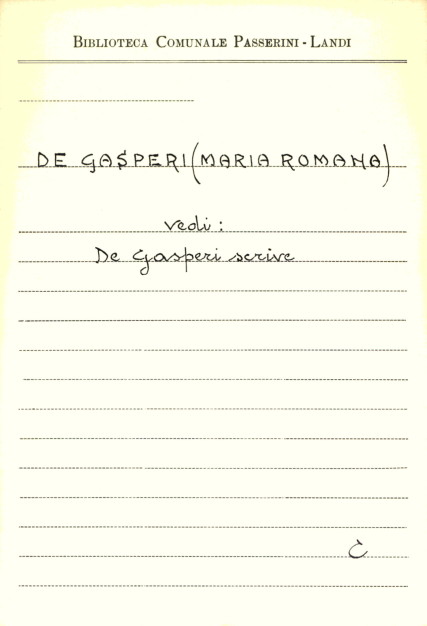 BIBLIOTECA COMUNALE PASSERINI - LANDI
DE GASPERI (MARIA ROMANA)
vedi:
De Gasperi scrive
C